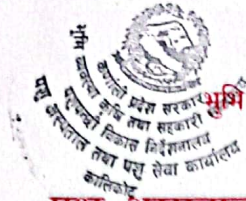 कर्णाली प्रदेश सरकार
भूमि व्यवस्था कृषि तथा सहकारी
पशुपन्छी विकास निर्देशनालय
पशु अस्पताल तथा पशु सेवा कार्यालय
कालिकोट
भुमि